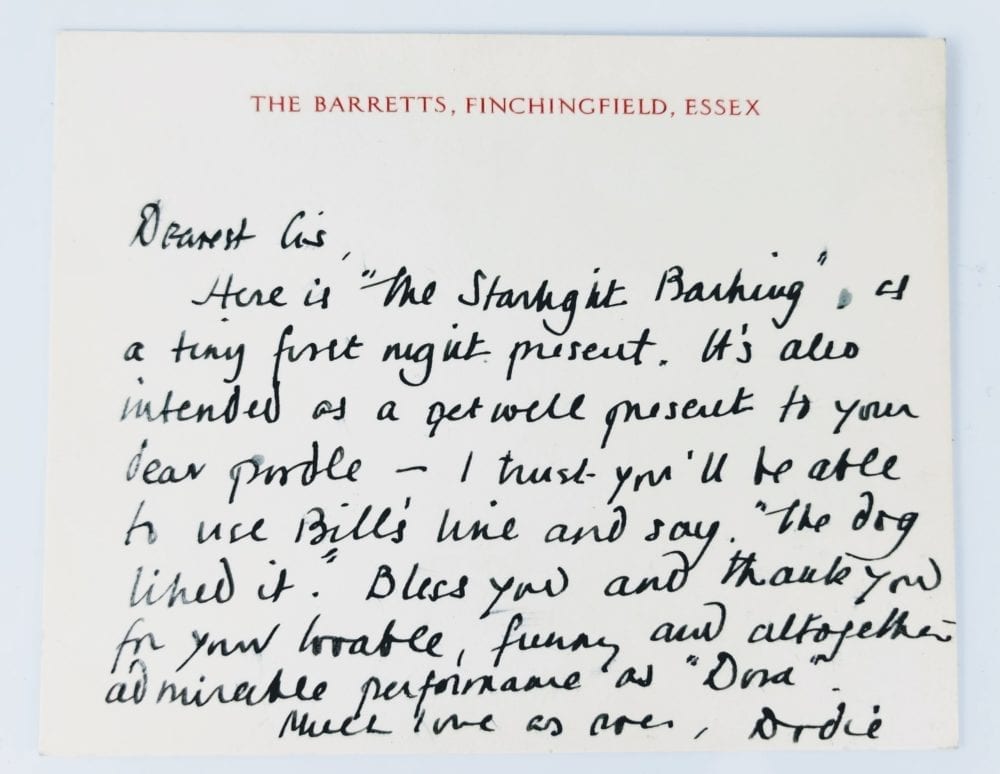 THE BARRETTS, FINCHINGFIELD, ESSEX
Dearest Cis,
Here is "The Starlight Barking", as
a tiny first night present. It's also
intended as a get well present to your
dear poodle – I trust you'll be able
to use Bill's line and say. "The dog
liked it." Bless you and thank you
for your lovable, funny and altogether
admirable performance as "Dora".
Much love as ever, Dodie